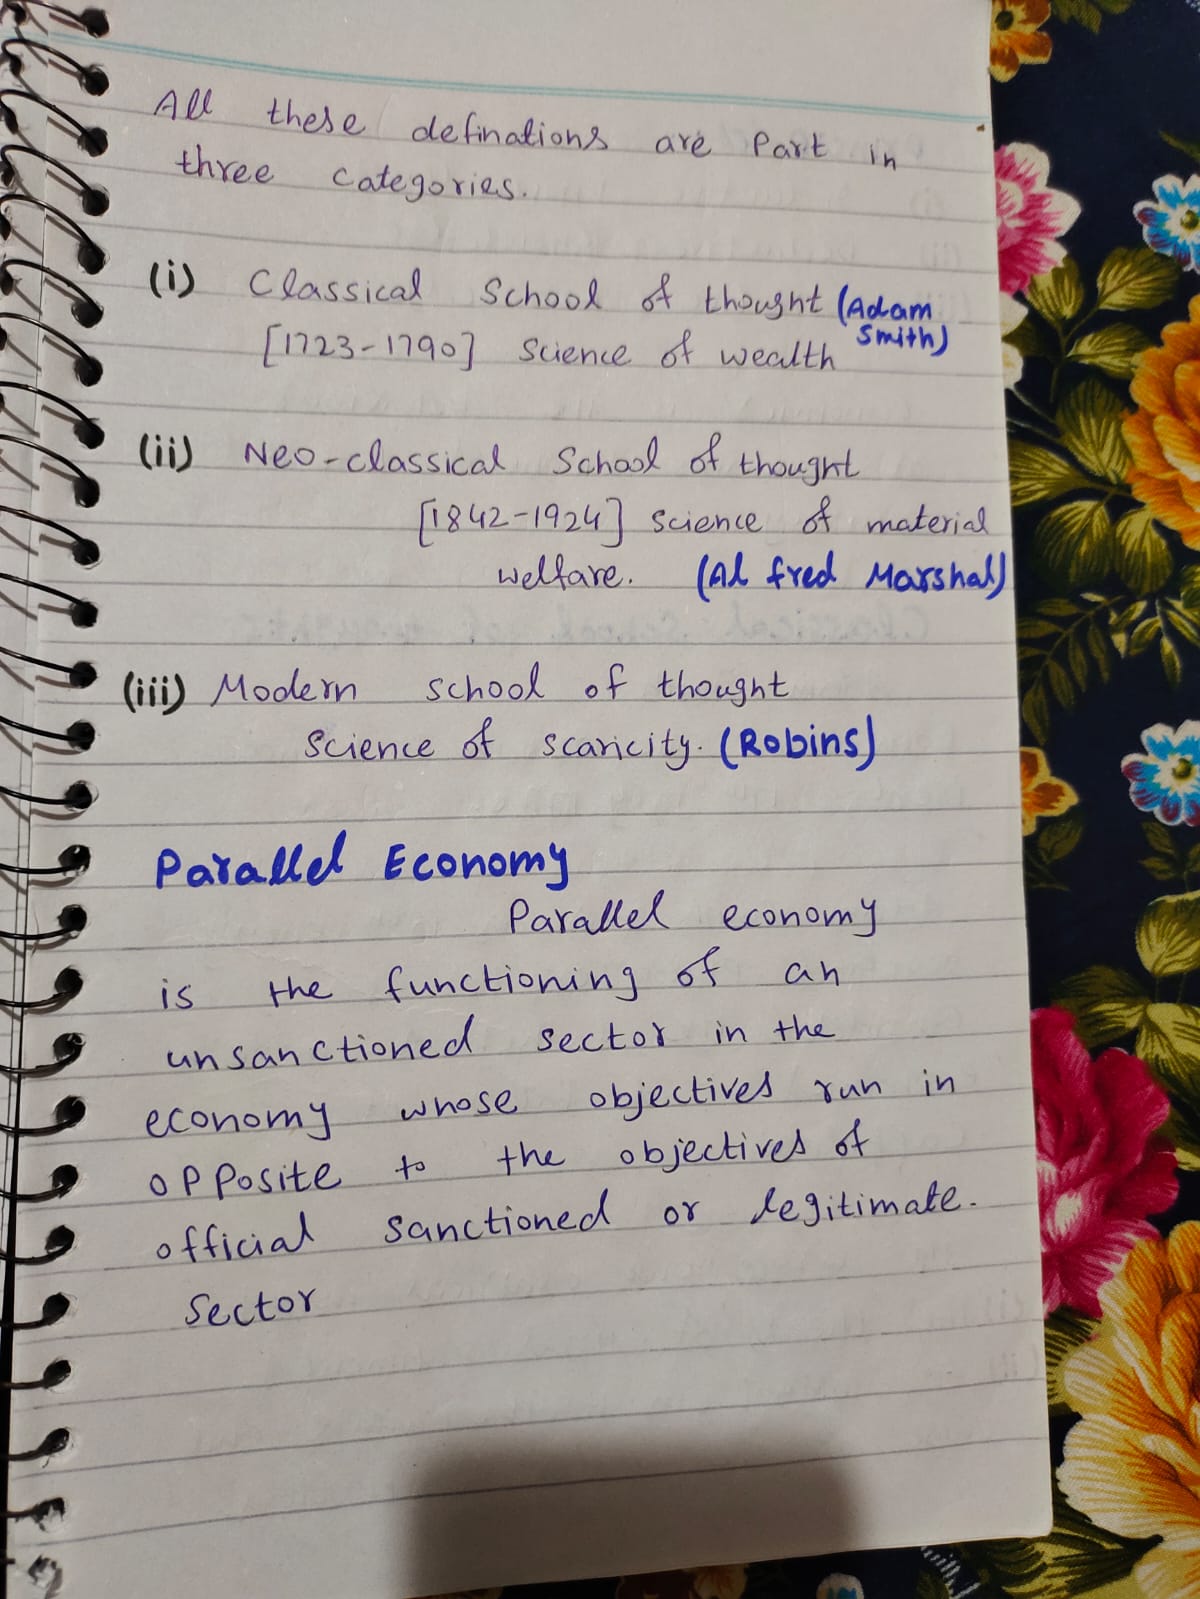 All these definations are Part in
three categories.
(i) Classical School of thought (Adam
Smith)
[1723-1790] Science of wealth
(ii) Neo-classical School of thought
[1842-1924] science of material
welfare. (Al fred Marshal)
(iii) Modern school of thought
Science of scaricity. (Robins)
Parallel Economy
Parallel economy
is the functioning of an
unsanctioned sector in the
economy whose objectives run in
opposite to the objectives of
official sanctioned or legitimate.
Sector